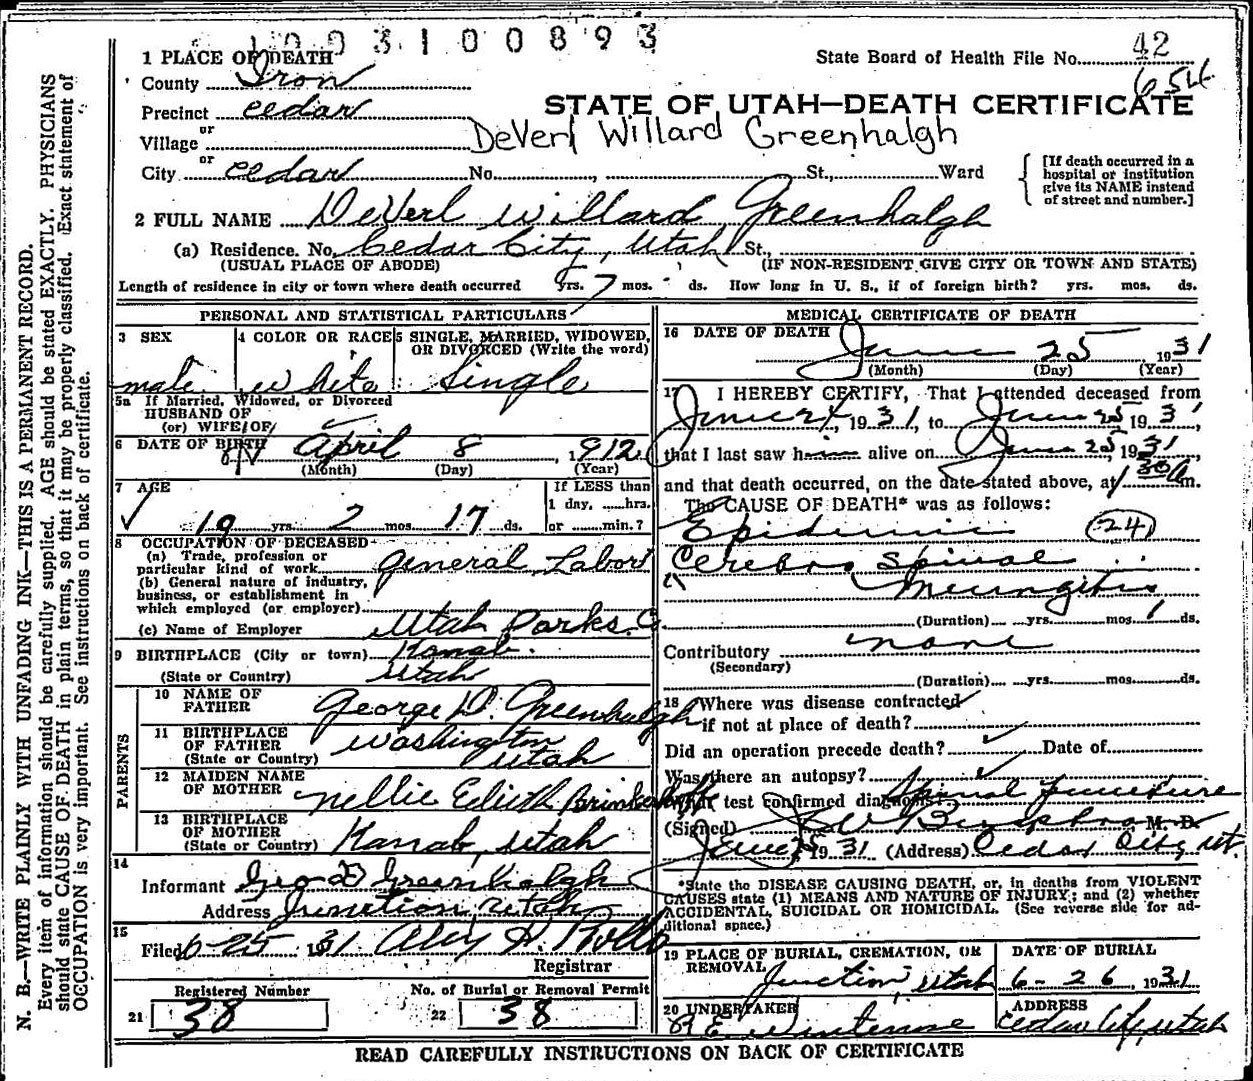 1003100893
State Board of Health File No. 42
654
1 PLACE OF DEATH
County Iron
Precinct Cedar
STATE OF UTAH—DEATH CERTIFICATE
or
Village
DeVerl Willard Greenhalgh
or
City Cedar No. , St., Ward
[If death occurred in a hospital or institution give its NAME instead of street and number.]
2 FULL NAME DeVerl Willard Greenhalgh
(a) Residence. No. Cedar City, Utah St.,
(USUAL PLACE OF ABODE) (IF NON-RESIDENT GIVE CITY OR TOWN AND STATE)
Length of residence in city or town where death occurred yrs. 7 mos. ds. How long in U. S., if of foreign birth? yrs. mos. ds.
PERSONAL AND STATISTICAL PARTICULARS
3 SEX
male
4 COLOR OR RACE
white
5 SINGLE, MARRIED, WIDOWED, OR DIVORCED (Write the word)
Single
5a If Married, Widowed, or Divorced
HUSBAND OF
(or) WIFE OF
6 DATE OF BIRTH April 8, 1912
(Month) (Day) (Year)
7 AGE
19 yrs. 2 mos. 17 ds.
If LESS than
1 day, ......hrs.
or ......min.?
8 OCCUPATION OF DECEASED
(a) Trade, profession or
particular kind of work General Labor
(b) General nature of industry,
business, or establishment in
which employed (or employer)
(c) Name of Employer Utah Parks Co.
9 BIRTHPLACE (City or town) Kanab
(State or Country) Utah
PARENTS
10 NAME OF FATHER George D. Greenhalgh
11 BIRTHPLACE OF FATHER
(State or Country)
Washington Utah
12 MAIDEN NAME OF MOTHER Nellie Edieth Brinkerhoff
13 BIRTHPLACE OF MOTHER
(State or Country)
Kanab, Utah
14
Informant Geo D Greenhalgh
Address Junction, Utah
15
Filed 6-25 1931
Registrar
Registered Number
21 38
No. of Burial or Removal Permit
22 38
MEDICAL CERTIFICATE OF DEATH
16 DATE OF DEATH
June 25, 1931
(Month) (Day) (Year)
17 I HEREBY CERTIFY, That I attended deceased from
June 24, 1931, to June 25 1931,
that I last saw him alive on June 25, 1931
and that death occurred, on the date stated above, at 1 30 m.
The CAUSE OF DEATH* was as follows:
Epidemic (24)
Cerebro Spinal
Meningitis
(Duration) yrs. mos. 1 ds.
Contributory none
(Secondary)
(Duration) yrs. mos. ds.
18 Where was disease contracted
if not at place of death?
Did an operation precede death? Date of
Was there an autopsy?
What test confirmed diagnosis? Spinal Puncture
(Signed) M. D.
June, 1931 (Address) Cedar City Ut.
*State the DISEASE CAUSING DEATH, or, in deaths from VIOLENT
CAUSES state (1) MEANS AND NATURE OF INJURY; and (2) whether
ACCIDENTAL, SUICIDAL OR HOMICIDAL. (See reverse side for ad-
ditional space.)
19 PLACE OF BURIAL, CREMATION, OR REMOVAL
Junction, Utah
DATE OF BURIAL
6-26, 1931
20 UNDERTAKER
ADDRESS
Cedar City, Utah
READ CAREFULLY INSTRUCTIONS ON BACK OF CERTIFICATE
N. B.—WRITE PLAINLY WITH UNFADING INK—THIS IS A PERMANENT RECORD.
Every item of information should be carefully supplied. AGE should be stated EXACTLY. PHYSICIANS
should state CAUSE OF DEATH in plain terms, so that it may be properly classified. Exact statement of
OCCUPATION is very important. See instructions on back of certificate.